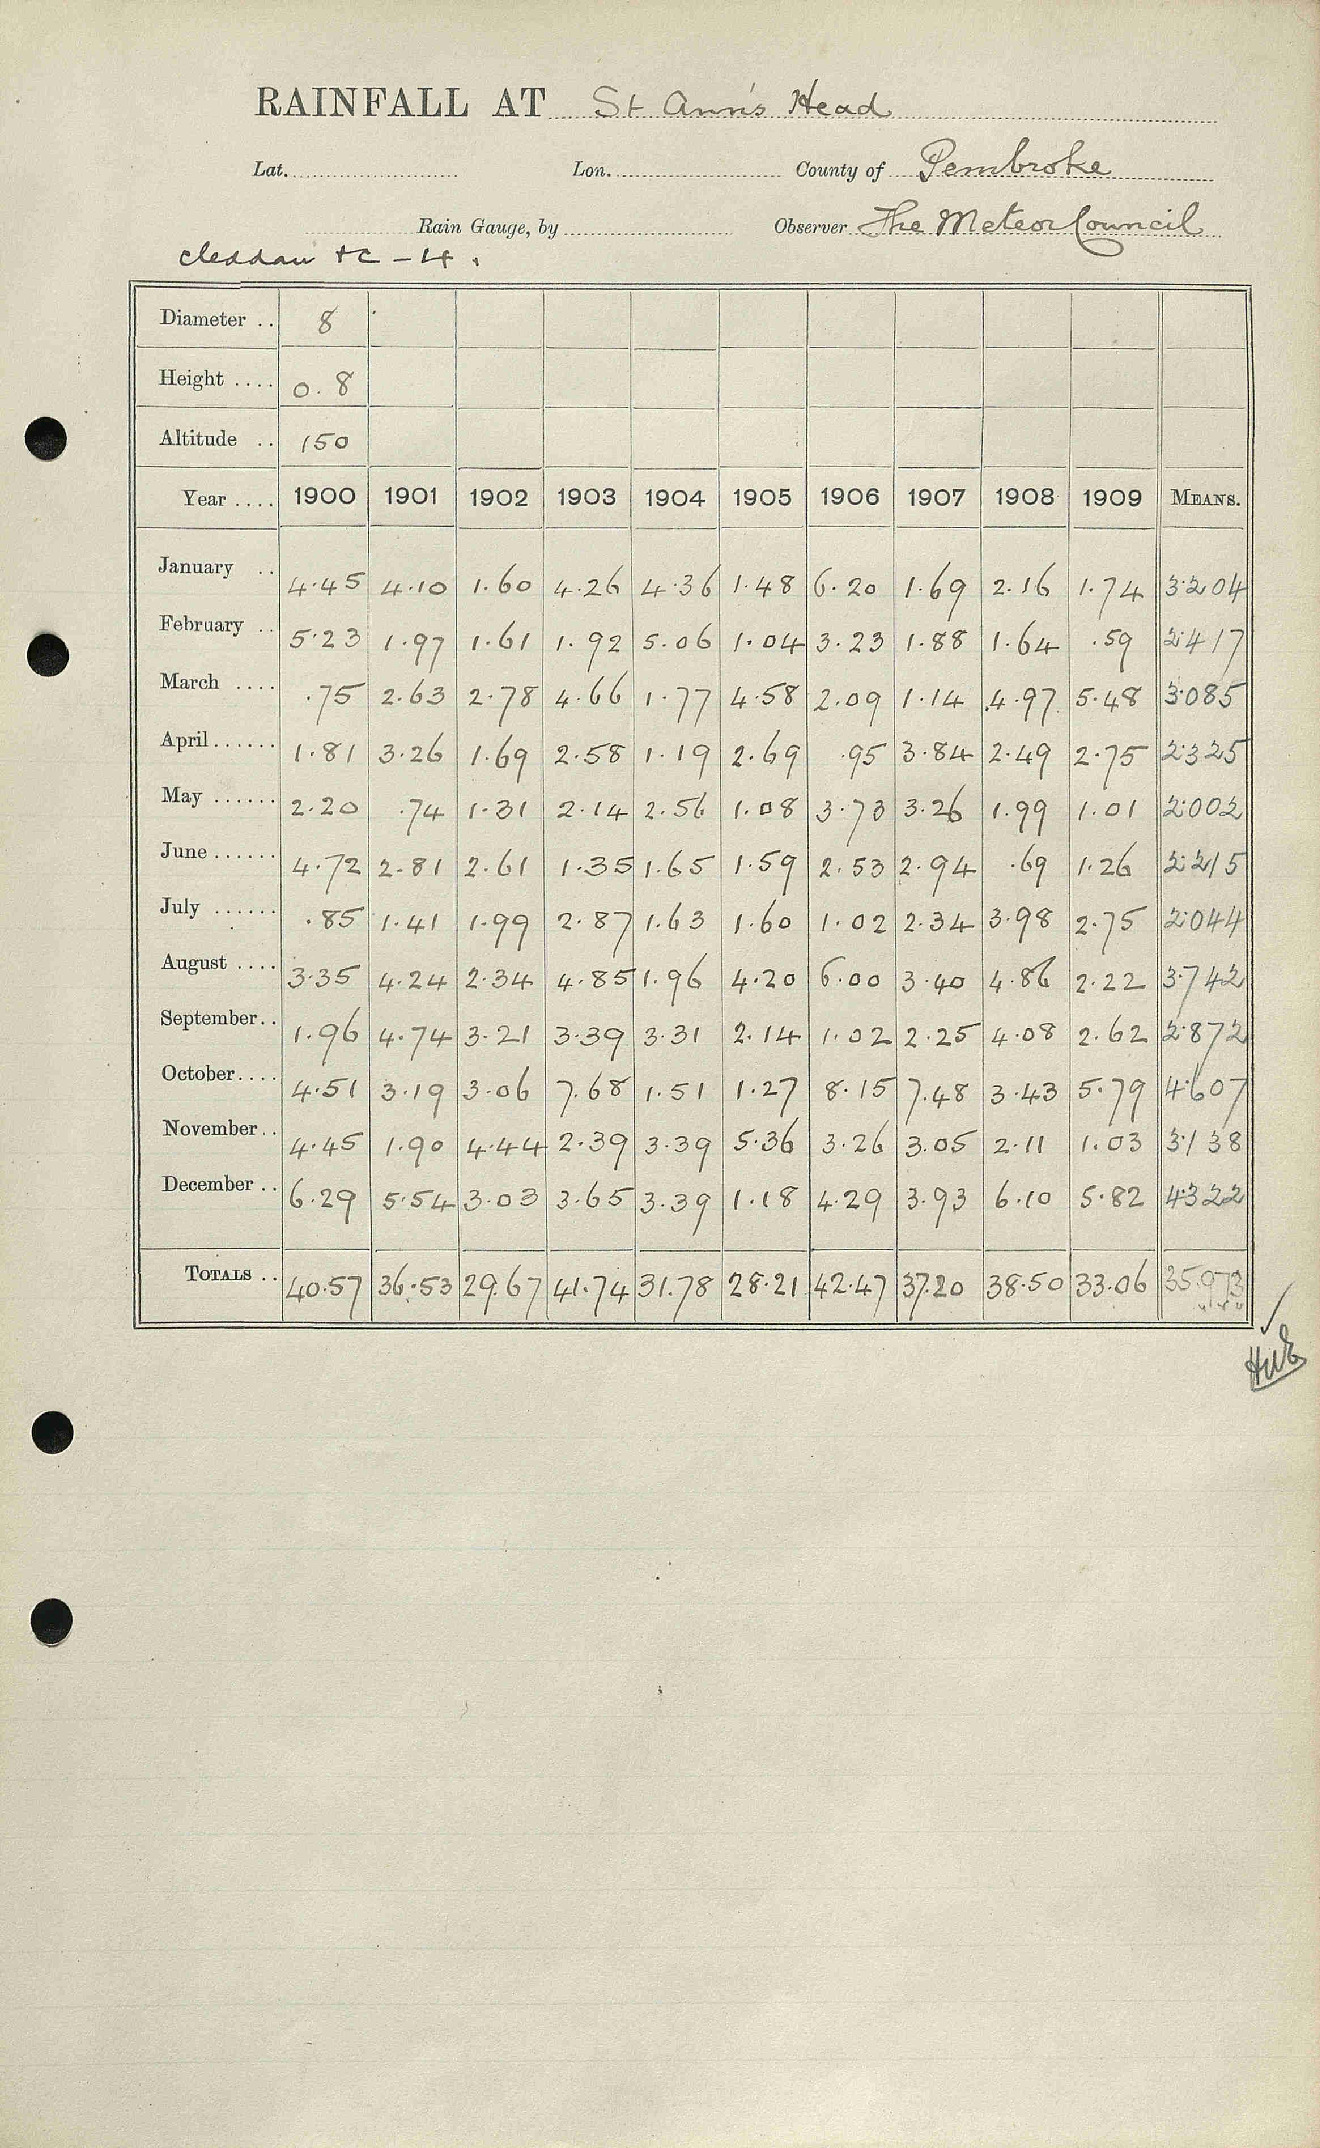 RAINFALL AT St Ann's Head
Lat. Lon. County of Pembroke
Rain Gauge, by Observer The Meteor Council
Cleddau &c - 4.
Diameter .. 8
Height .... 0.8
Altitude .. 150
Year .... 1900 1901 1902 1903 1904 1905 1906 1907 1908 1909 MEANS.
January .. 4.45 4.10 1.60 4.26 4.36 1.48 6.20 1.69 2.16 1.74 3.204
February .. 5.23 1.97 1.61 1.92 5.06 1.04 3.23 1.88 1.64 .59 2.417
March .... .75 2.63 2.78 4.66 1.77 4.58 2.09 1.14 4.97 5.48 3.085
April...... 1.81 3.26 1.69 2.58 1.19 2.69 .95 3.84 2.49 2.75 2.325
May ...... 2.20 .74 1.31 2.14 2.56 1.08 3.73 3.26 1.99 1.01 2.002
June...... 4.72 2.81 2.61 1.35 1.65 1.59 2.53 2.94 .69 1.26 2.215
July ...... .85 1.41 1.99 2.87 1.63 1.60 1.02 2.34 3.98 2.75 2.044
August .... 3.35 4.24 2.34 4.85 1.96 4.20 6.00 3.40 4.86 2.22 3.742
September.. 1.96 4.74 3.21 3.39 3.31 2.14 1.02 2.25 4.08 2.62 2.872
October.... 4.51 3.19 3.06 7.68 1.51 1.27 8.15 7.48 3.43 5.79 4.607
November.. 4.45 1.90 4.44 2.39 3.39 5.36 3.26 3.05 2.11 1.03 3.138
December .. 6.29 5.54 3.03 3.65 3.39 1.18 4.29 3.93 6.10 5.82 4.322
TOTALS .. 40.57 36.53 29.67 41.74 31.78 28.21 42.47 37.20 38.50 33.06 35.973